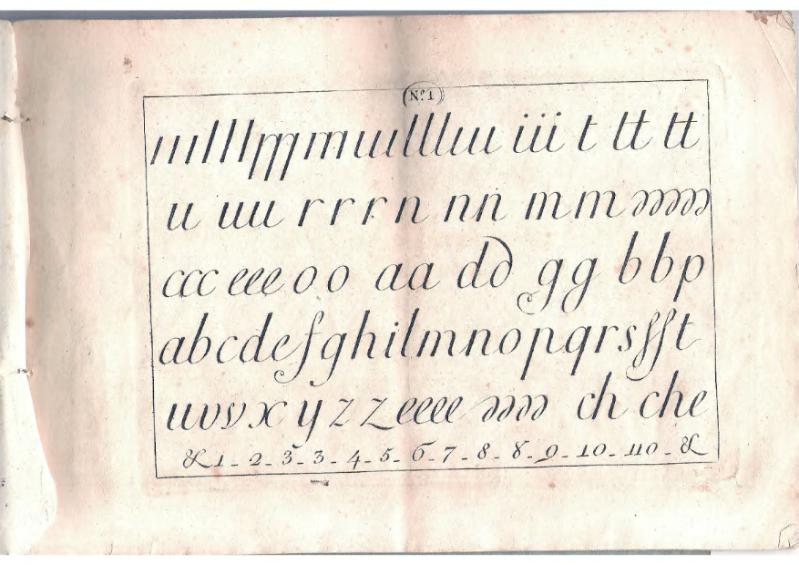 Nº. 1
ııılllpppmuıllluı iii t tt tt
u uu r r r n nn m m
ccc eee o o aa dd gg b b p
abcdefghilmnopqrsſſt
uvvxyzzeeee ch che
& 1 - 2 - 3 - 3 - 4 - 5 - 6 - 7 - 8 - 8 - 9 - 10 - 110 - &